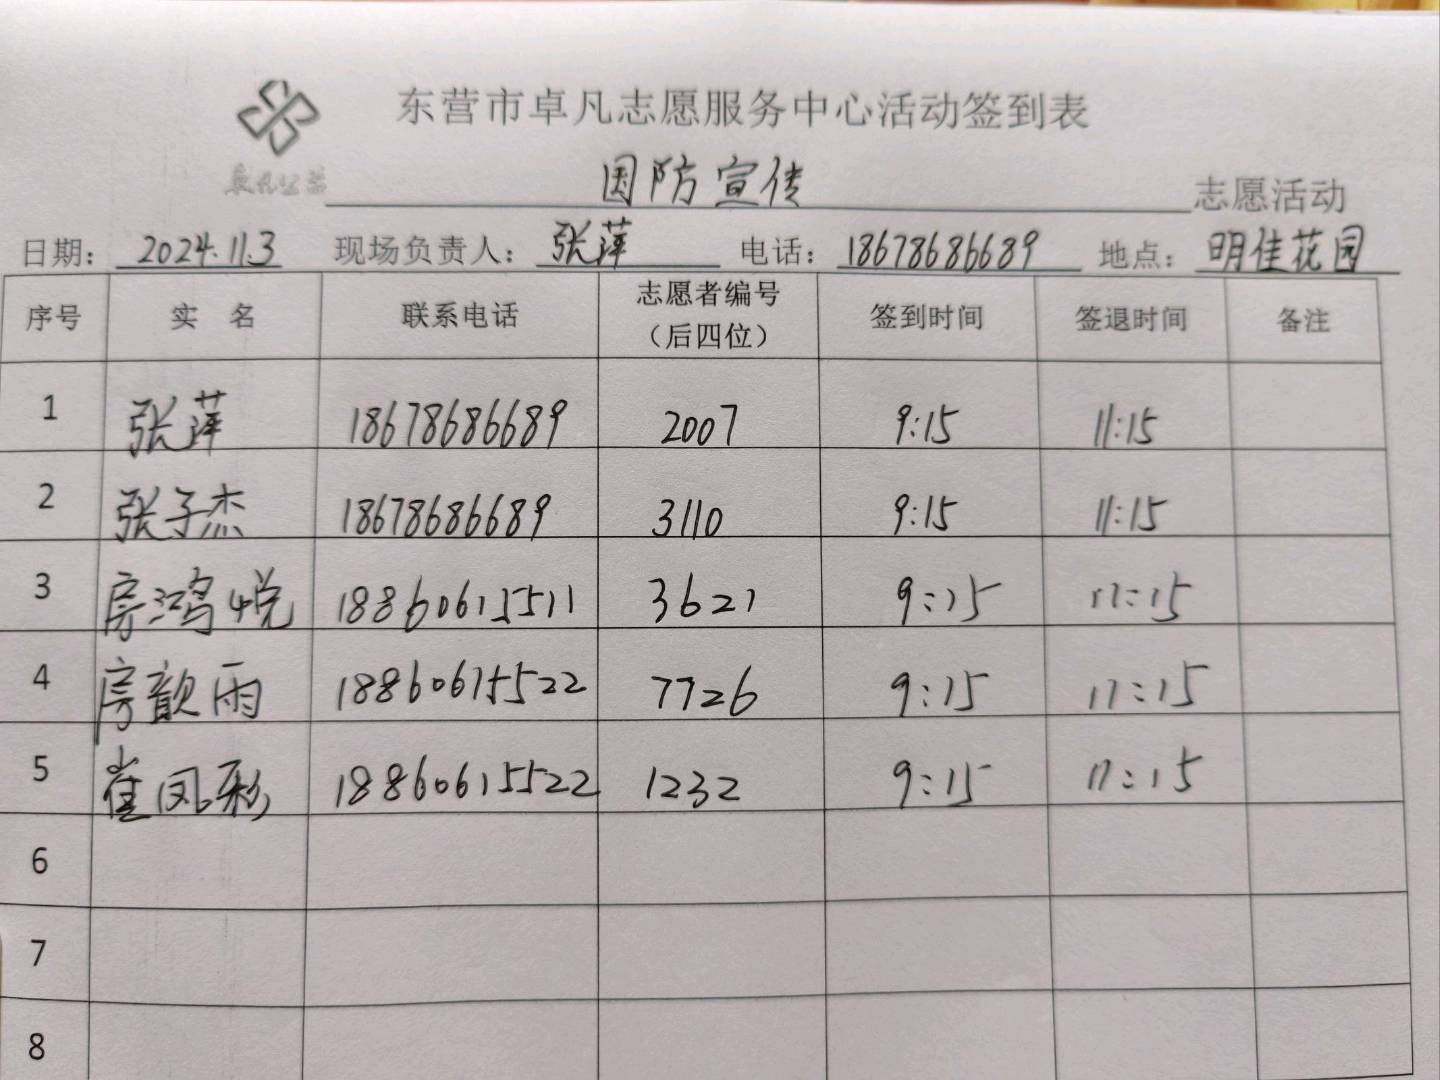 东营市卓凡志愿服务中心活动签到表
卓凡公益
国防宣传 志愿活动
日期：2024.11.3 现场负责人：张萍 电话：18678686689 地点：明佳花园
序号 实 名 联系电话 志愿者编号（后四位） 签到时间 签退时间 备注
1 张萍 18678686689 2007 9:15 11:15
2 张子杰 18678686689 3110 9:15 11:15
3 房鸿悦 18860615511 3621 9:15 11:15
4 房歆雨 18860615522 7726 9:15 11:15
5 崔凤彩 18860615522 1232 9:15 11:15
6
7
8